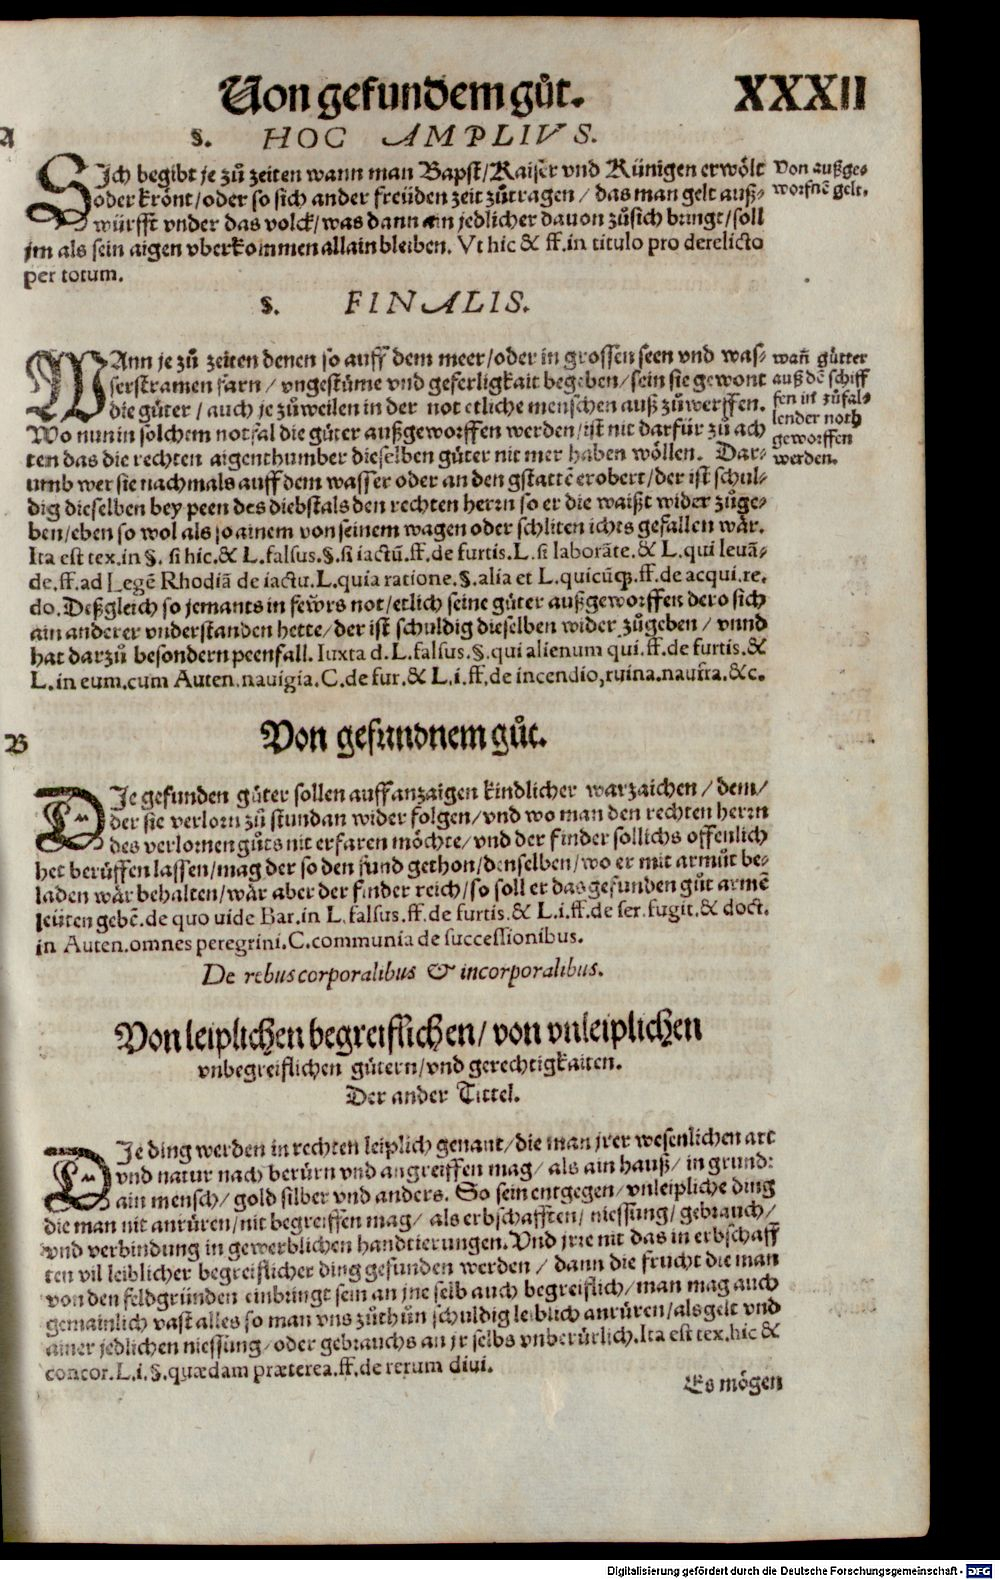 Von gefundem gůt. XXXII
A
§. HOC AMPLIVS.
SIch begibt je zů zeiten wann man Bapst/Kaiser vnd Künigen erwölt
oder krönt/oder so sich ander freüden zeit zůtragen/das man gelt auß-
würfft vnder das volck/was dann ain jedlicher dauon zůsich bringt/soll
jm als sein aigen vberkommen allain bleiben. Vt hic & ff.in titulo pro derelicto
per totum.
Von außge-
worfnē gelt.
§. FINALIS.
WAnn je zů zeiten denen so auff dem meer/oder in grossen seen vnd was-
serstramen farn/vngestüme vnd geferligkait begeben/sein sie gewont
die güter/auch je zůweilen in der not etliche menschen auß zůwerffen.
Wo nun in solchem notfal die güter außgeworffen werden/ist nit darfür zů ach
ten das die rechten aigenthumber dieselben güter nit mer haben wöllen. Dar-
umb wer sie nachmals auff dem wasser oder an den gstattē erobert/der ist schul-
dig dieselben bey peen des diebstals den rechten herrn so er die waißt wider zůge-
ben/eben so wol als so ainem von seinem wagen oder schliten ichts gefallen wär.
Ita est tex.in §. si hic.& L.falsus.§.si iactū.ff.de furtis.L.si laborāte.& L.qui leuā-
de.ff.ad Legē Rhodiā de iactu.L.quia ratione.§.alia et L.quicūq̧.ff.de acqui.re.
do.Deßgleich so jemants in fewrs not/etlich seine güter außgeworffen dero sich
ain anderer vnderstanden hette/der ist schuldig dieselben wider zůgeben/vnnd
hat darzů besondern peenfall. Iuxta d.L.falsus.§.qui alienum qui.ff.de furtis.&
L.in eum.cum Auten.nauigia.C.de fur.& L.i.ff.de incendio,ruina.naufra.&c.
wañ gütter
auß dē schiff
fen in zůfal-
lender noth
geworffen
werden.
B
Von gefundnem gůt.
DIe gefunden güter sollen auff anzaigen kindlicher warzaichen/dem/
der sie verlorn zů stundan wider folgen/vnd wo man den rechten herrn
des verlornen gůts nit erfaren möchte/vnd der finder sollichs offenlich
het berüffen lassen/mag der so den fund gethon/denselben/wo er mit armůt be-
laden wär behalten/wär aber der finder reich/so soll er das gefunden gůt armē
leüten gebē.de quo uide Bar.in L.falsus.ff.de furtis.& L.i.ff.de ser.fugit.& doct.
in Auten.omnes peregrini.C.communia de successionibus.
De rebus corporalibus & incorporalibus.
Von leiplichen begreiflichen/von vnleiplichen
vnbegreiflichen gütern/vnd gerechtigkaiten.
Der ander Tittel.
DIe ding werden in rechten leiplich genant/die man jrer wesenlichen art
vnd natur nach berürn vnd angreiffen mag/als ain hauß/in grund:
ain mensch/gold silber vnd anders. So sein entgegen/vnleipliche ding
die man nit anrüren/nit begreiffen mag/als erbschafften/niessung/gebrauch/
vnd verbindung in gewerblichen handtierungen.Vnd jrre nit das in erbschaff
ten vil leiblicher begreiflicher ding gefunden werden/dann die frucht die man
von den feldgründen einbringt sein an jne selb auch begreiflich/man mag auch
gemainlich vast alles so man vns zůthůn schuldig leiblich anrüren/als gelt vnd
ainer jedlichen niessung/oder gebrauchs an jr selbs vnberürlich.Ita est tex.hic &
concor.L.i.§.quædam præterea.ff.de rerum diui.
Es mögen
Digitalisierung gefördert durch die Deutsche Forschungsgemeinschaft - DFG